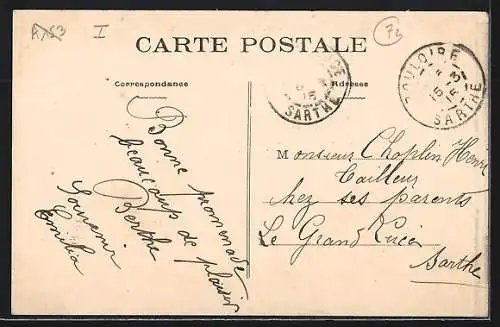 A753 I 72
CARTE POSTALE
Correspondance
Adresse
SARTHE
BOULOIRE
15-3
15
SARTHE
Bonne promenade
beaucoup de plaisir
Berthe
Souvenir
Emilia
Monsieur Choplin Henri
Tailleur
chez ses parents
Le Grand Lucé
Sarthe